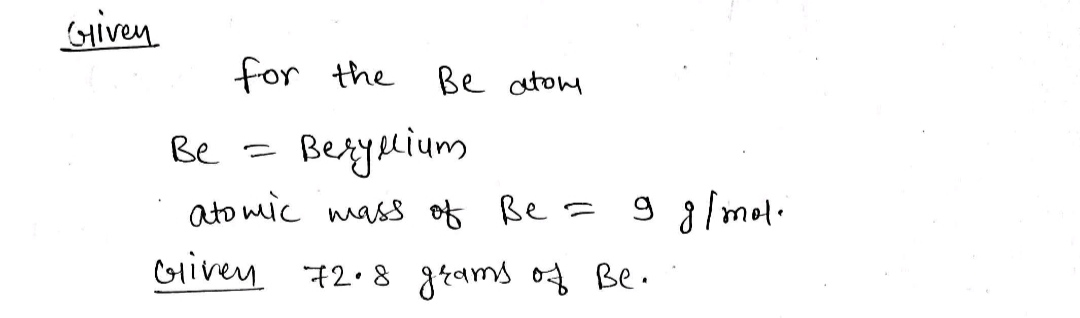 Given
for the Be atom
Be = Beryllium
atomic mass of Be = 9 g/mol.
Given 72.8 grams of Be.